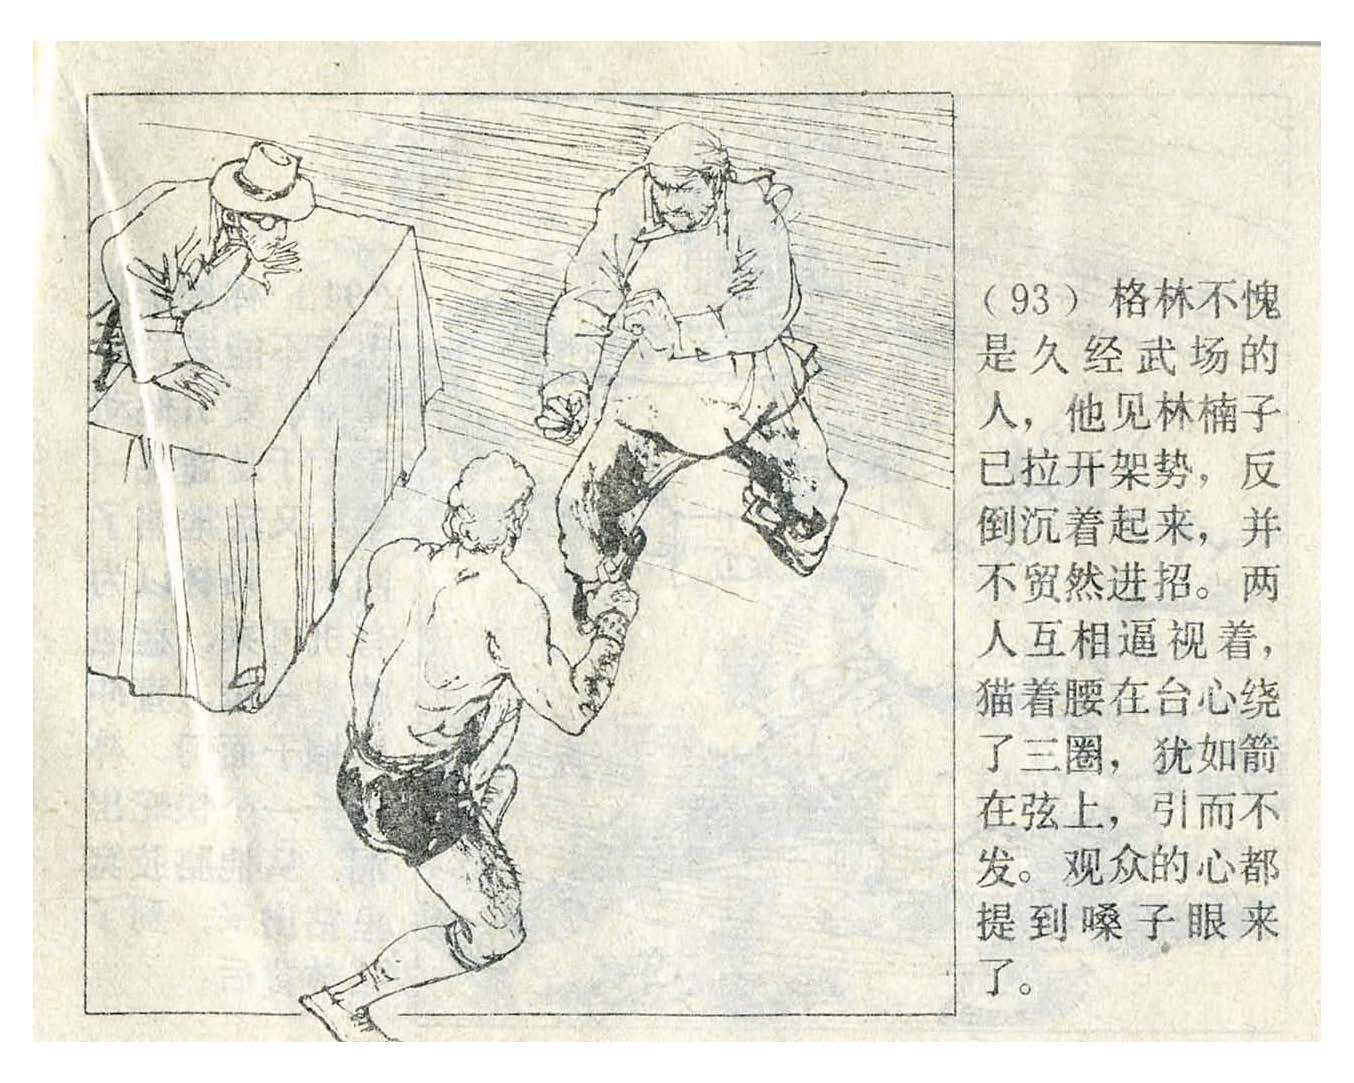 （93）格林不愧
是久经武场的
人，他见林楠子
已拉开架势，反
倒沉着起来，并
不贸然进招。两
人互相逼视着，
猫着腰在台心绕
了三圈，犹如箭
在弦上，引而不
发。观众的心都
提到嗓子眼来
了。